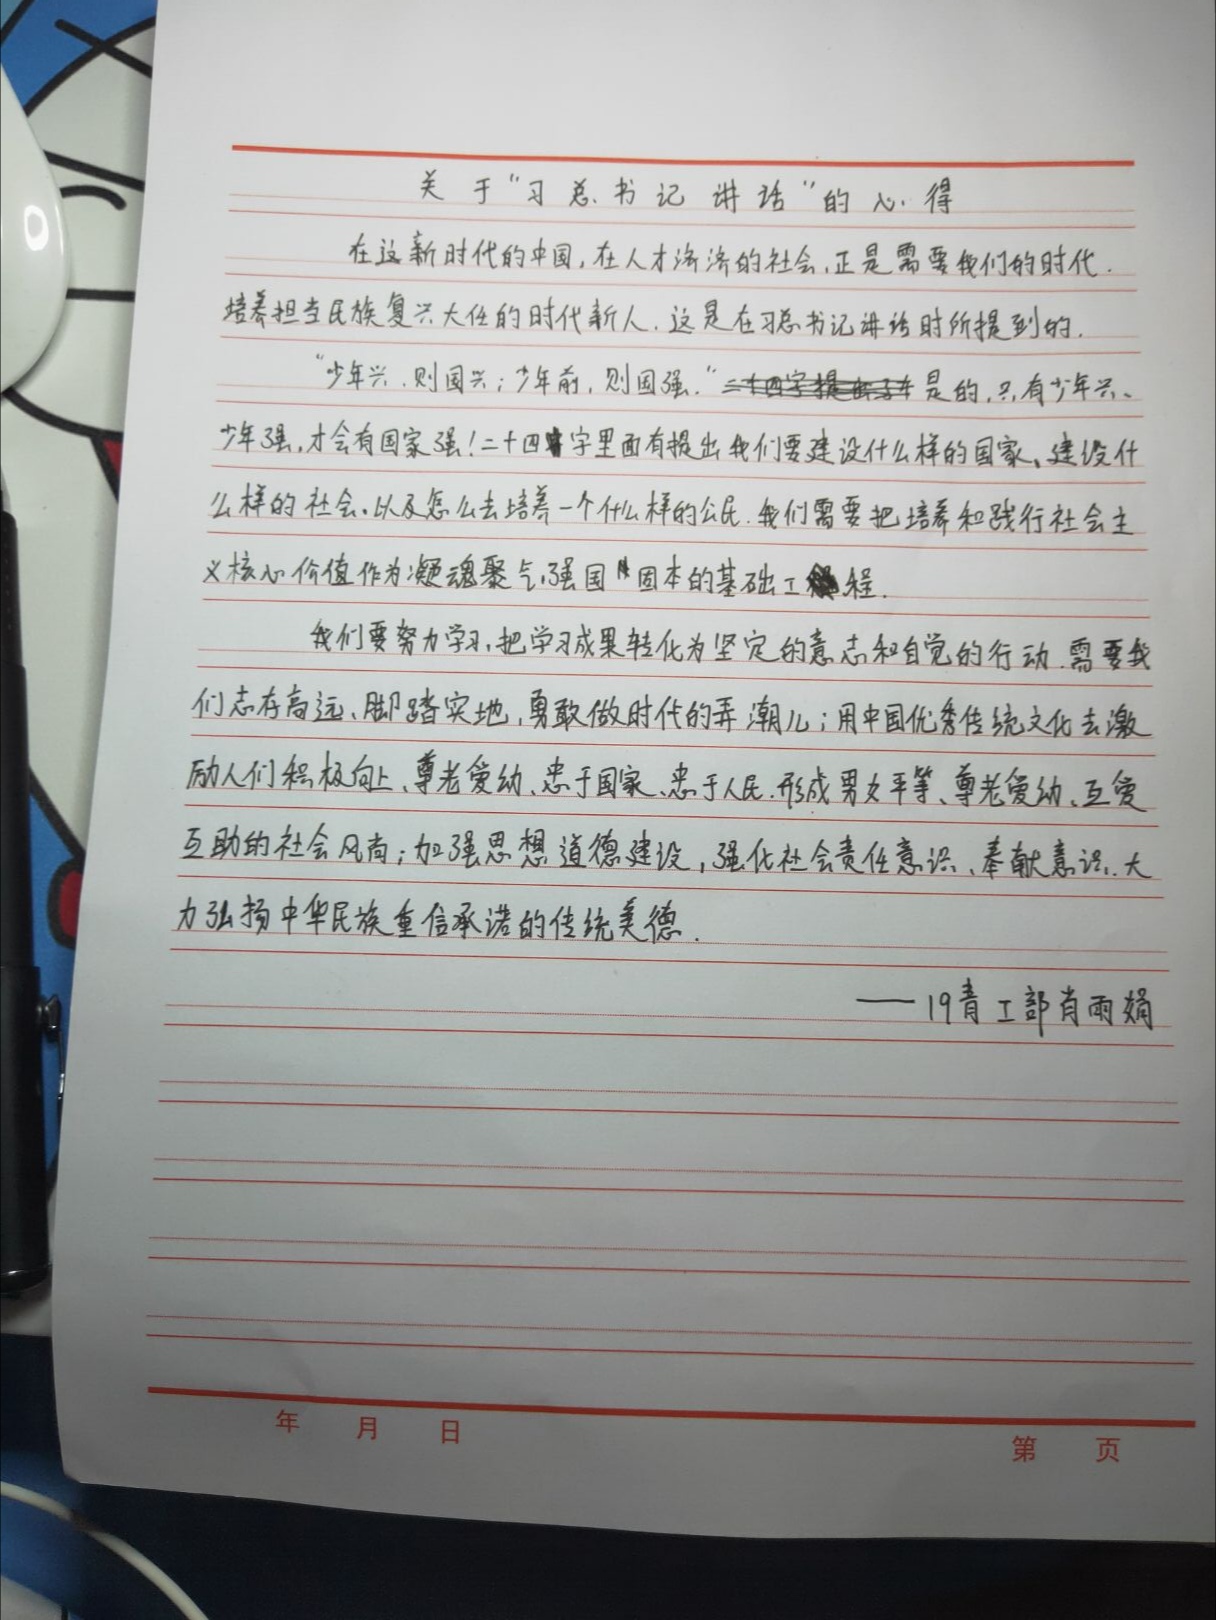 关于“习总书记讲话”的心得
在这新时代的中国,在人才济济的社会,正是需要我们的时代.
培养担当民族复兴大任的时代新人.这是在习总书记讲话时所提到的.
“少年兴,则国兴;少年前,则国强.”是的,只有少年兴、
少年强,才会有国家强!二十四字里面有提出我们要建设什么样的国家、建设什
么样的社会.以及怎么去培养一个什么样的公民.我们需要把培养和践行社会主
义核心价值作为凝魂聚气,强国固本的基础工程.
我们要努力学习,把学习成果转化为坚定的意志和自觉的行动.需要我
们志存高远、脚踏实地,勇敢做时代的弄潮儿;用中国优秀传统文化去激
励人们积极向上、尊老爱幼、忠于国家、忠于人民.形成男女平等、尊老爱幼、互爱
互助的社会风尚;加强思想道德建设,强化社会责任意识、奉献意识.大
力弘扬中华民族重信承诺的传统美德.
——19青工部肖雨娟
年 月 日
第 页